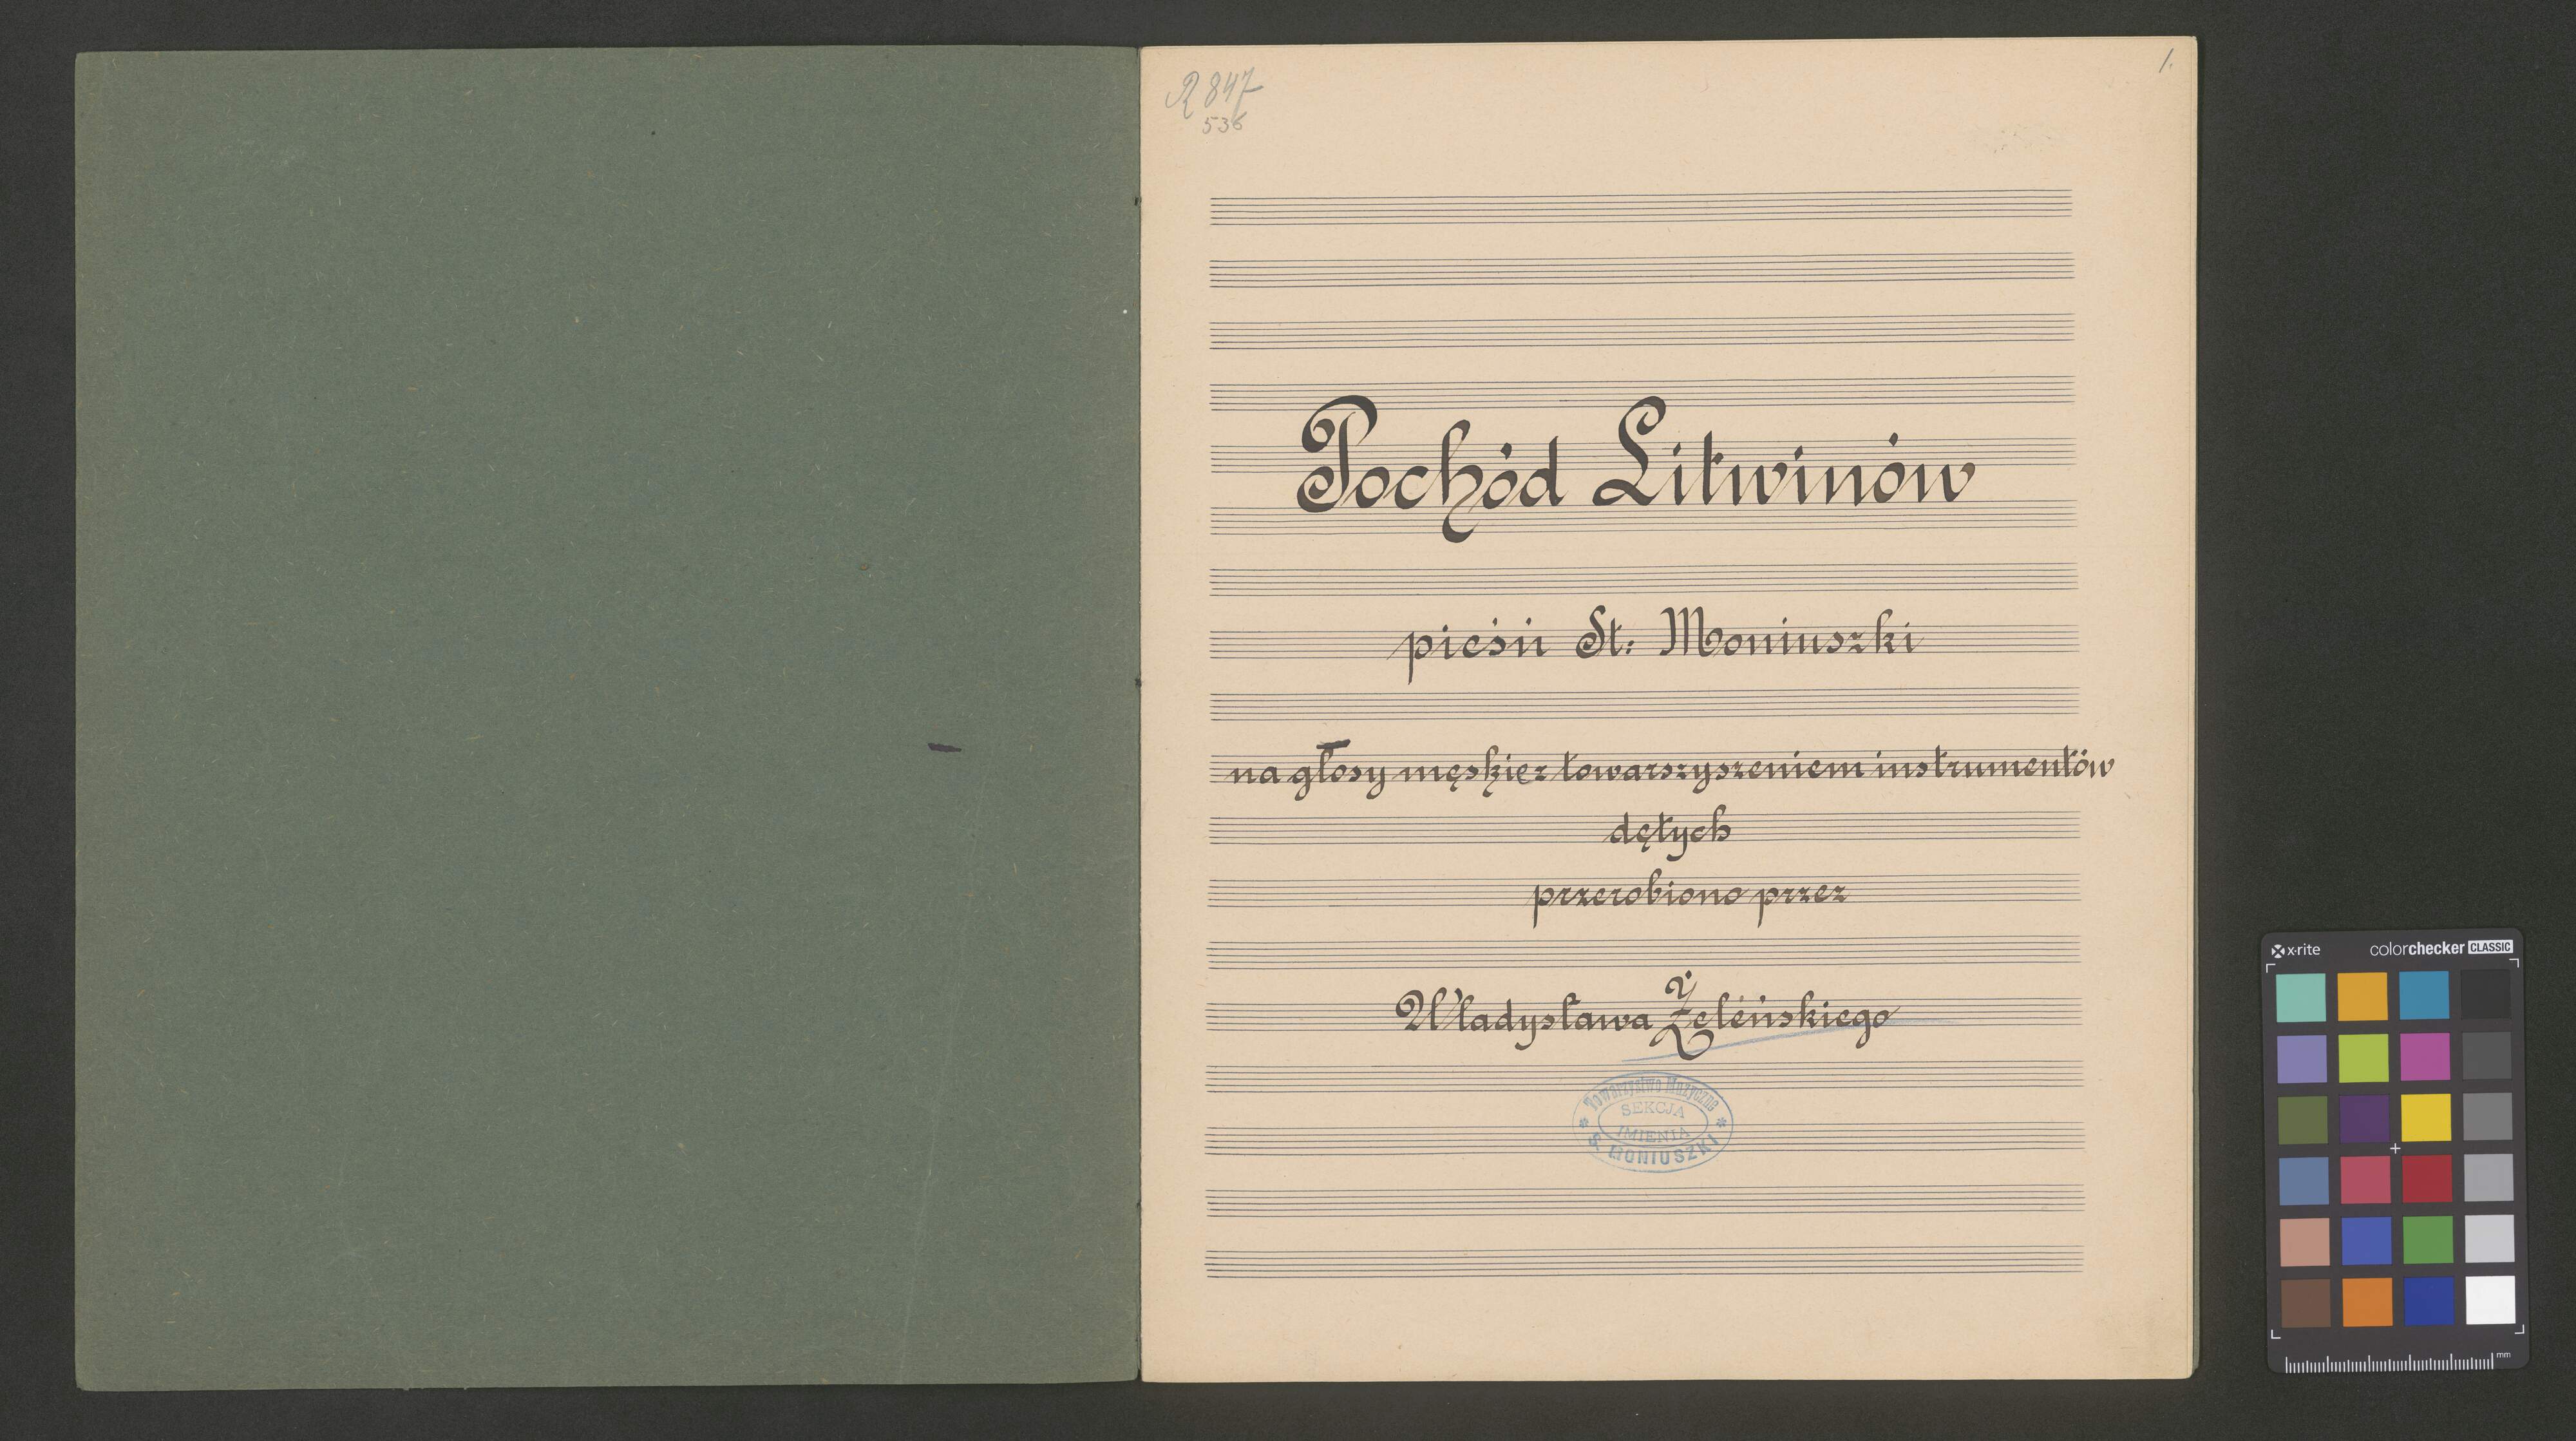 R 847
536
1.
Pochód Litwinów
pieśń St: Moniuszki
na głosy męskie z towarszyszeniem instrumentów
dętych
przerobiono przez
Władysława Żeleńskiego
Towarzystwo Muzyczne
SEKCJA
IMIENIA
S. MONIUSZKI
x-rite
colorchecker CLASSIC
mm